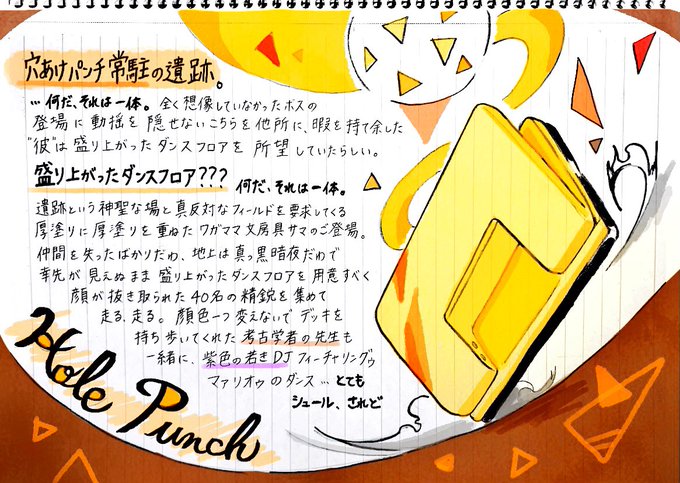 穴あけパンチ常駐の遺跡。
…何だ、それは一体。全く想像していなかったボスの
登場に動揺を隠せないこちらを他所に、暇を持て余した
"彼"は盛り上がったダンスフロアを所望していたらしい。
盛り上がったダンスフロア??? 何だ、それは一体。
遺跡という神聖な場と真反対なフィールドを要求してくる
厚塗りに厚塗りを重ねたワガママ文房具サマのご登場。
仲間を失ったばかりだわ、地上は真っ黒暗夜だわで
幸先が見えぬまま盛り上がったダンスフロアを用意すべく
顔が抜き取られた40名の精鋭を集めて
走る、走る。顔色一つ変えないでデッキを
持ち歩いてくれた考古学者の先生も
一緒に、紫色の若きDJフィーチャリングゥ
マァリオゥのダンス…とても
シュール、されど
Hole Punch